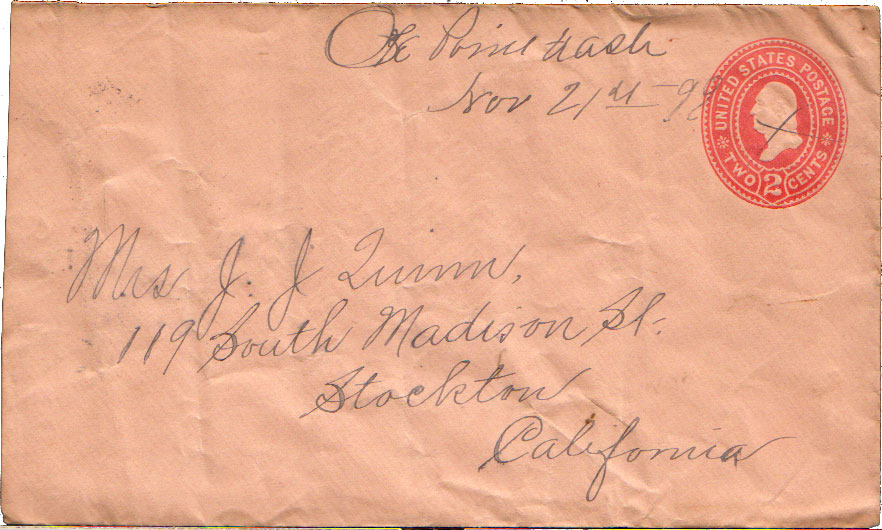 Point Wash
Nov 21st
UNITED STATES POSTAGE
TWO 2 CENTS
Mrs J. J Quinn,
119 South Madison St.
Stockton
California